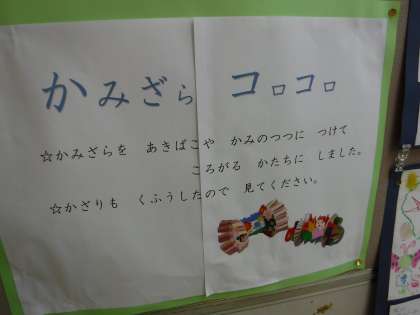 かみざら コロコロ
☆かみざらを あきばこや かみのつつに つけて
ころがる かたちに しました。
☆かざりも くふうしたので 見てください。